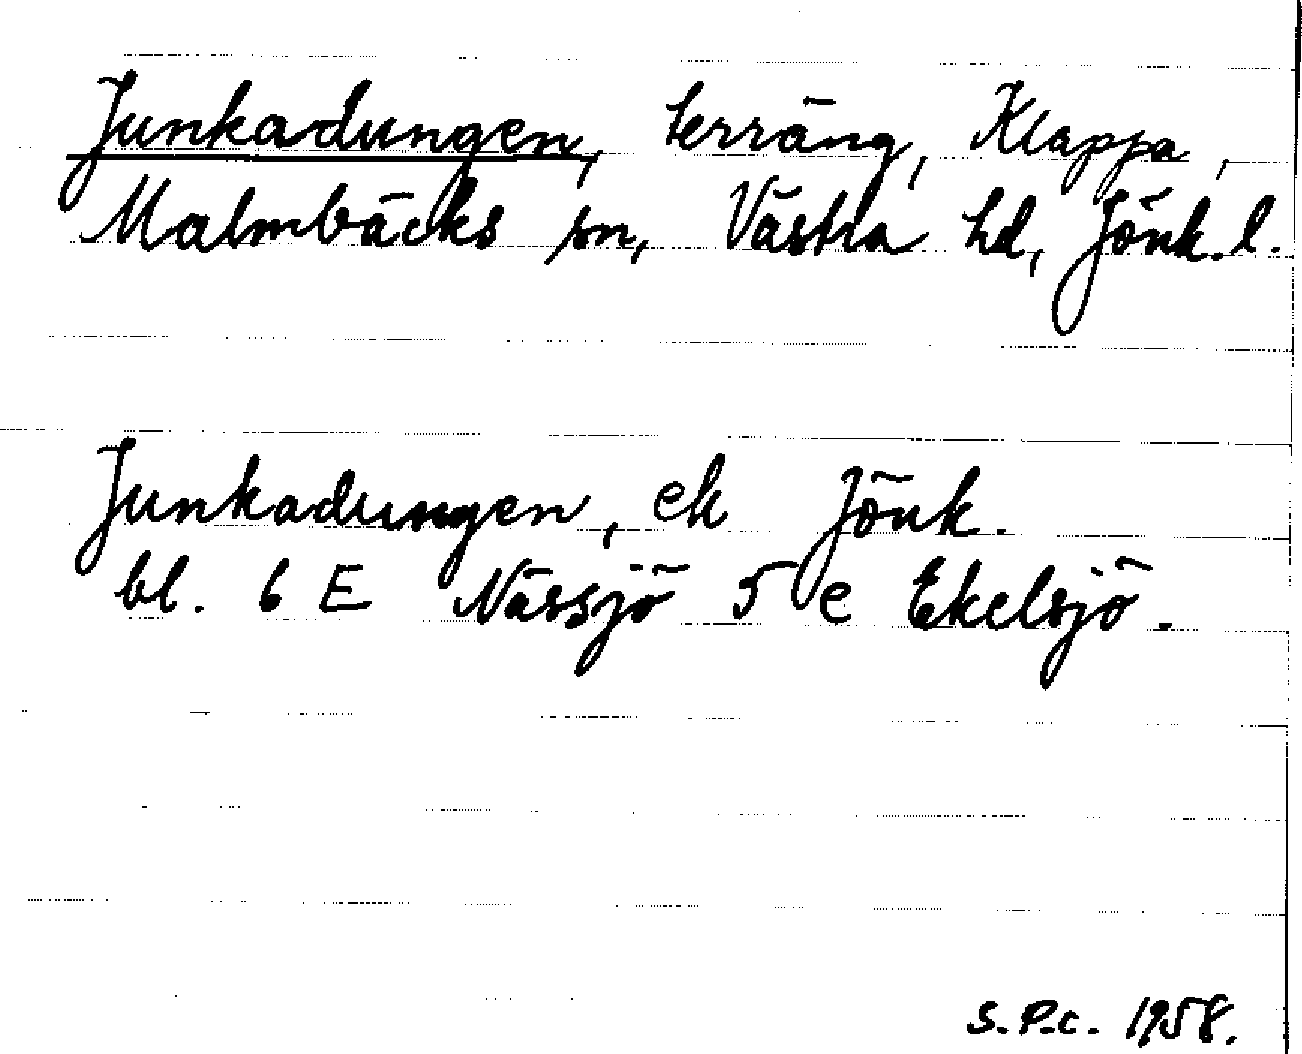 Junkadungen, terräng, Klappa,
Malmbäcks sn, Västra hd, Jönk. l.
Junkadungen, ek Jönk.
bl. 6 E Nässjö 5 e Ekelsjö.
S.P.C. 1958.